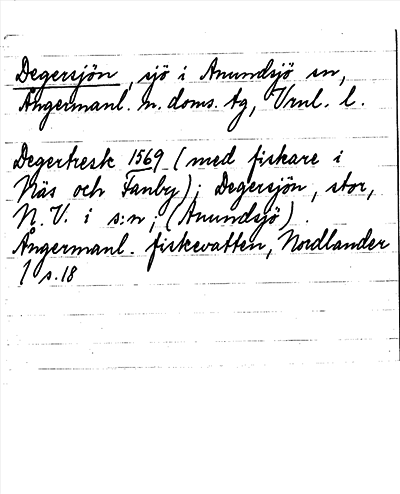 Degersjön, sjö i Anundsjö sn,
Ångermanl. n. doms. tg, Vrnl. l.
Degertresk 1569 (med fiskare i
Näs och Tanby); Degersjön, stor,
N. V. i s:n; (Anundsjö).
Ångermanl. fiskevatten, Nordlander
1 s. 18